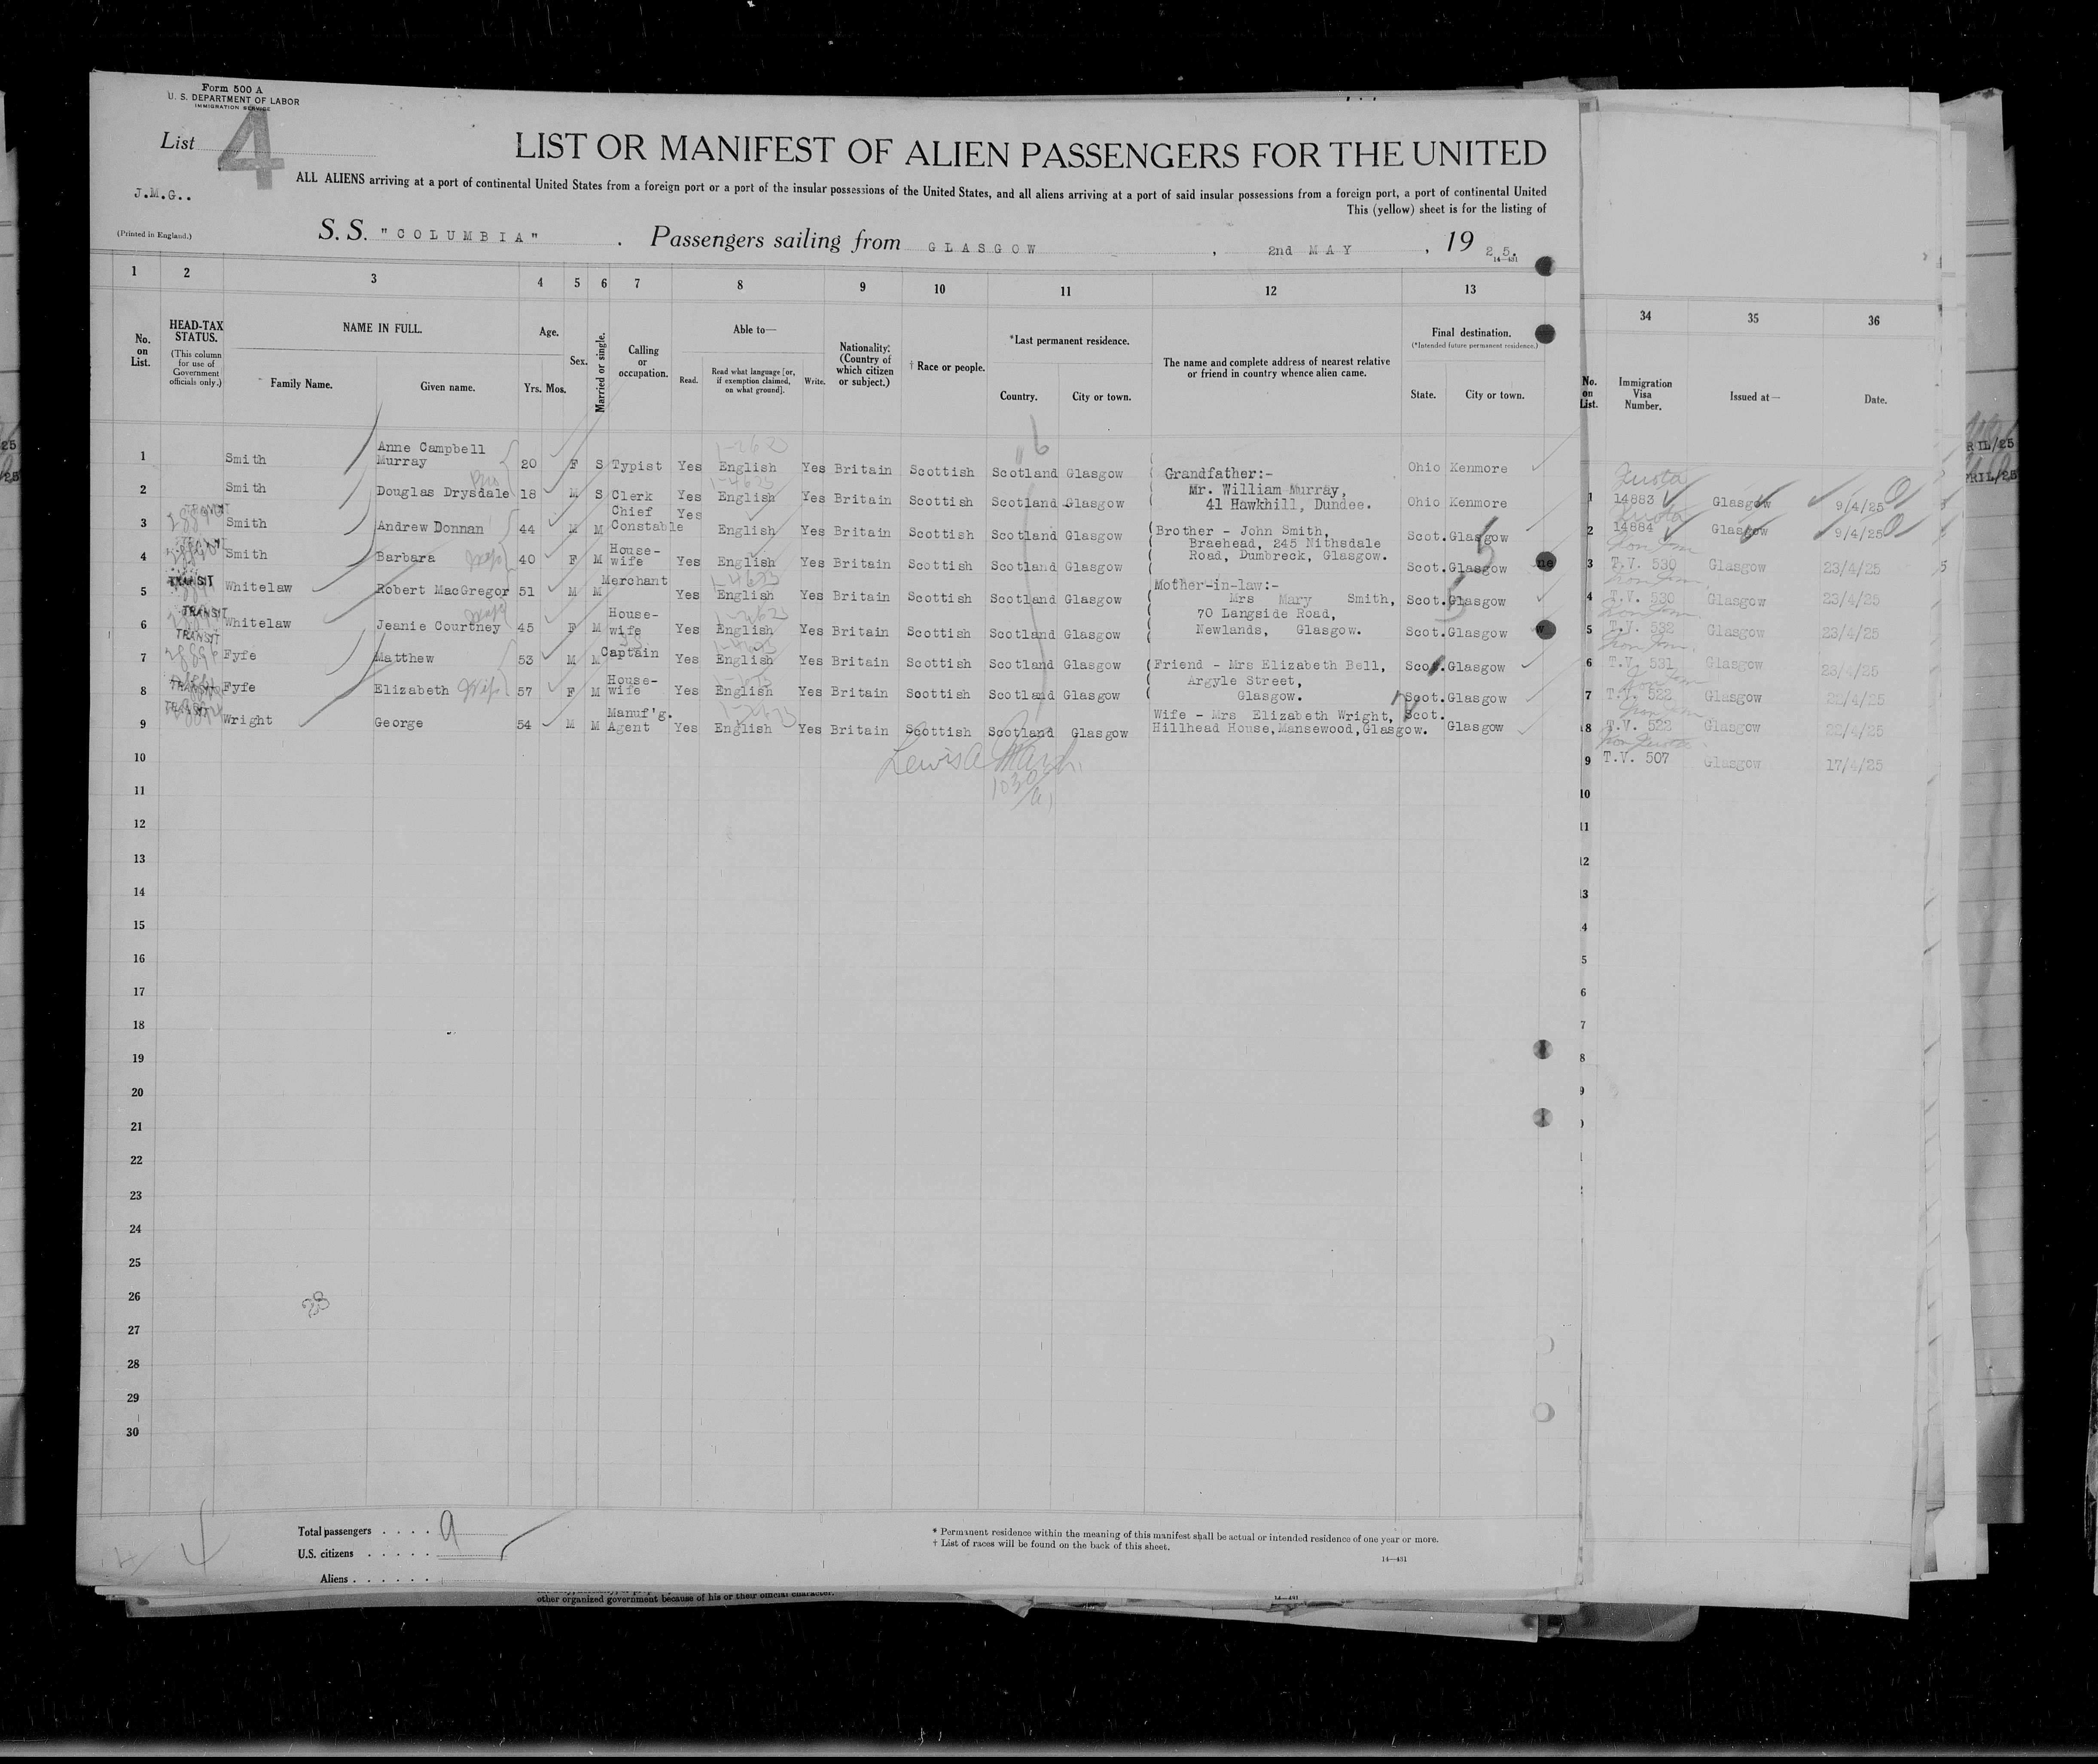 Form 500 A
U. S. DEPARTMENT OF LABOR
IMMIGRATION SERVICE
List 4
LIST OR MANIFEST OF ALIEN PASSENGERS FOR THE UNITED
ALL ALIENS arriving at a port of continental United States from a foreign port or a port of the insular possessions of the United States, and all aliens arriving at a port of said insular possessions from a foreign port, a port of continental United
J.M.G..
This (yellow) sheet is for the listing of
(Printed in England.)
S. S. "COLUMBIA" . Passengers sailing from GLASGOW , 2nd MAY , 19 25.
14—431
1 2 3 4 5 6 7 8 9 10 11 12 13
34 35 36
No. on List.
HEAD-TAX STATUS.
(This column for use of Government officials only.)
NAME IN FULL.
Family Name. Given name.
Age.
Yrs. Mos.
Sex.
Married or single.
Calling or occupation.
Able to—
Read. Read what language [or, if exemption claimed, on what ground]. Write.
Nationality. (Country of which citizen or subject.)
† Race or people.
*Last permanent residence.
Country. City or town.
The name and complete address of nearest relative or friend in country whence alien came.
Final destination.
(*Intended future permanent residence.)
State. City or town.
No. on List.
Immigration Visa Number.
Issued at—
Date.
1 Smith Anne Campbell Murray 20 F S Typist Yes English Yes Britain Scottish Scotland Glasgow Grandfather:- Ohio Kenmore
2 Smith Douglas Drysdale 18 M S Clerk Yes English Yes Britain Scottish Scotland Glasgow Mr. William Murray, 41 Hawkhill, Dundee. Ohio Kenmore
3 TRANSIT Smith Andrew Donnan 44 M M Chief Constable Yes English Yes Britain Scottish Scotland Glasgow Brother - John Smith, Scot. Glasgow
4 TRANSIT Smith Barbara 40 F M House-wife Yes English Yes Britain Scottish Scotland Glasgow Braehead, 245 Nithsdale Road, Dumbreck, Glasgow. Scot. Glasgow
5 TRANSIT Whitelaw Robert MacGregor 51 M M Merchant Yes English Yes Britain Scottish Scotland Glasgow Mother-in-law:- Mrs Mary Smith, Scot. Glasgow
6 TRANSIT Whitelaw Jeanie Courtney 45 F M House-wife Yes English Yes Britain Scottish Scotland Glasgow 70 Langside Road, Newlands, Glasgow. Scot. Glasgow
7 TRANSIT Fyfe Matthew 53 M M Captain Yes English Yes Britain Scottish Scotland Glasgow Friend - Mrs Elizabeth Bell, Scot. Glasgow
8 TRANSIT Fyfe Elizabeth Wife 57 F M House-wife Yes English Yes Britain Scottish Scotland Glasgow Argyle Street, Glasgow. Scot. Glasgow
9 TRANSIT Wright George 54 M M Manuf'g. Agent Yes English Yes Britain Scottish Scotland Glasgow Wife - Mrs Elizabeth Wright, Hillhead House, Mansewood, Glasgow. Scot. Glasgow
10
11
12
13
14
15
16
17
18
19
20
21
22
23
24
25
26
27
28
29
30
Quota
1 14883 Glasgow 9/4/25
Quota
2 14884 Glasgow 9/4/25
3 T.V. 530 Glasgow 23/4/25
4 T.V. 530 Glasgow 23/4/25
5 T.V. 532 Glasgow 23/4/25
6 T.V. 531 Glasgow 23/4/25
7 T.V. 522 Glasgow 22/4/25
8 T.V. 522 Glasgow 22/4/25
9 T.V. 507 Glasgow 17/4/25
10
11
12
13
Total passengers . . . . 9
U.S. citizens . . . . .
Aliens . . . . . .
* Permanent residence within the meaning of this manifest shall be actual or intended residence of one year or more.
† List of races will be found on the back of this sheet.
14—431
other organized government because of his or their official character.
14—431